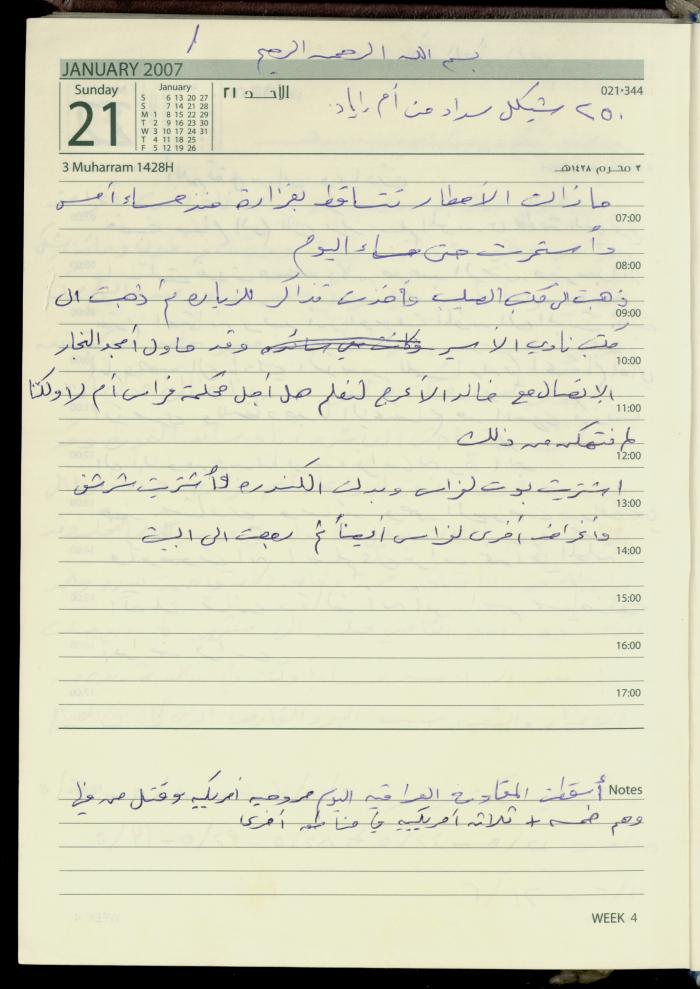 /
بسم الله الرحمن الرحيم
JANUARY 2007
Sunday
21
January
S 6 13 20 27
S 7 14 21 28
M 1 8 15 22 29
T 2 9 16 23 30
W 3 10 17 24 31
T 4 11 18 25
F 5 12 19 26
الأحد ٢١
021-344
٢٥٠ شيكل سداد من أم اياد
3 Muharram 1428H
٢ محرم ١٤٢٨هـ
ما زالت الأمطار تتساقط بغزارة منذ مساء أمس
07:00
وأستمرت حتى مساء اليوم
08:00
ذهبت الى مكتب الصليب وأخذت تذاكر للزياره ثم ذهبت الى
09:00
مكتب نادي الأسير وقد حاول أمجد النجار
10:00
الإتصال مع خالد الأعرج لنعلم هل أجل محكمة فراس أم لا ولكننا
11:00
لم نتمكن من ذلك
12:00
اشتريت بوت لفراس وبدلت الكندره وأشتريت شرشف
13:00
وأغراض أخرى لفراس أيضاً ثم رجعت الى البيت
14:00
15:00
16:00
17:00
Notes
أسقطت المقاومة العراقيه اليوم مروحيه امريكيه وقتل من فيها
وهم خمسه + ثلاثه أمريكيين في مناطق أخرى
WEEK 4